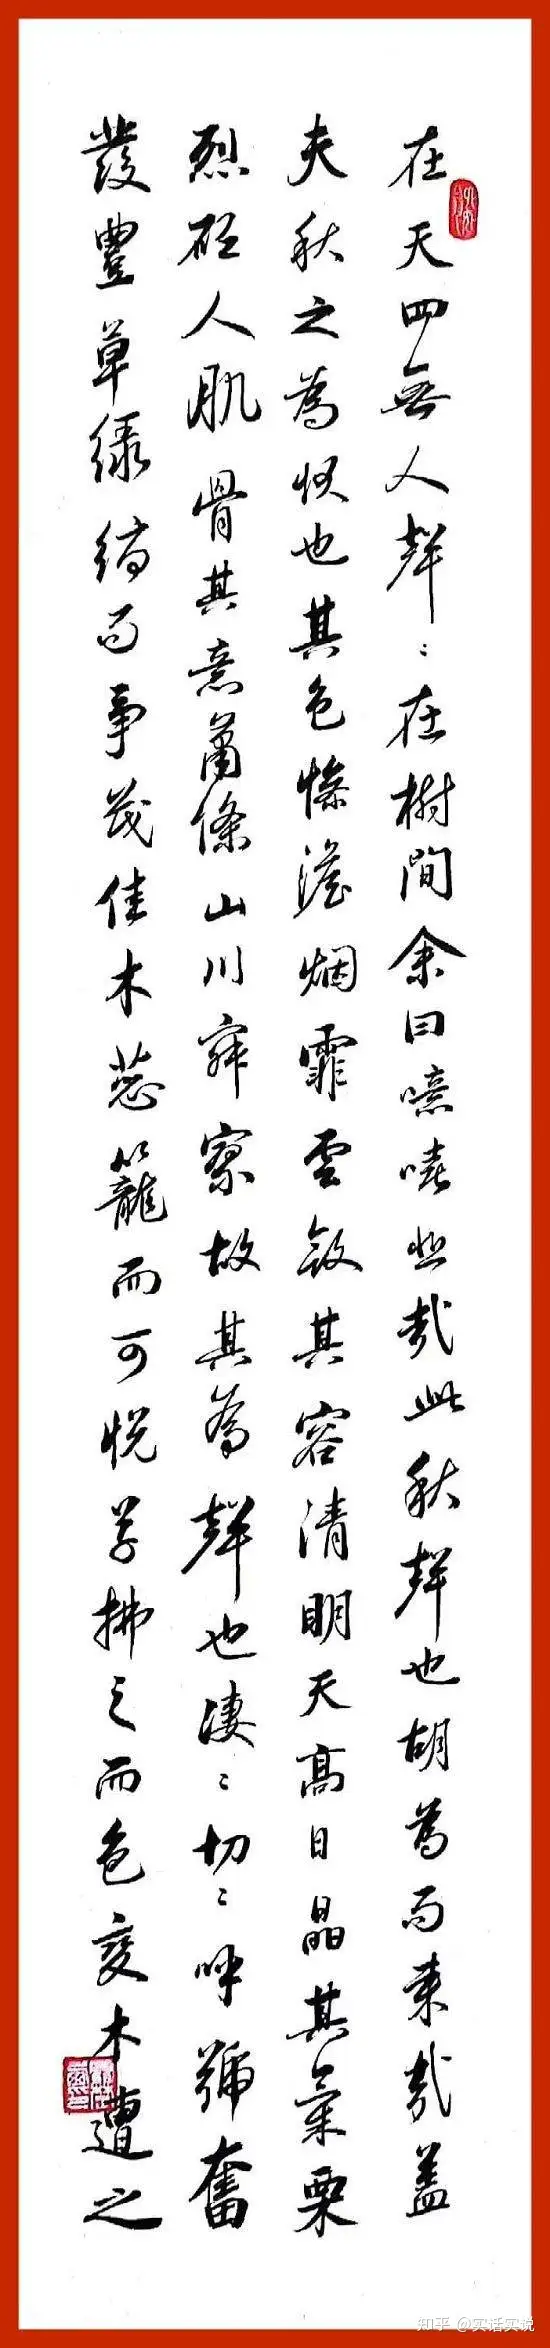 在天四無人聲〻在樹間余曰噫嘻悲哉此秋聲也胡為而来哉蓋
夫秋之為狀也其色慘澹烟霏雲斂其容清明天高日晶其氣栗
烈砭人肌骨其意蕭條山川寂寥故其為聲也淒〻切〻呼號奮
發豐草緑縟而争茂佳木葱籠而可悦草拂之而色變木遭之
知乎 @实话实说